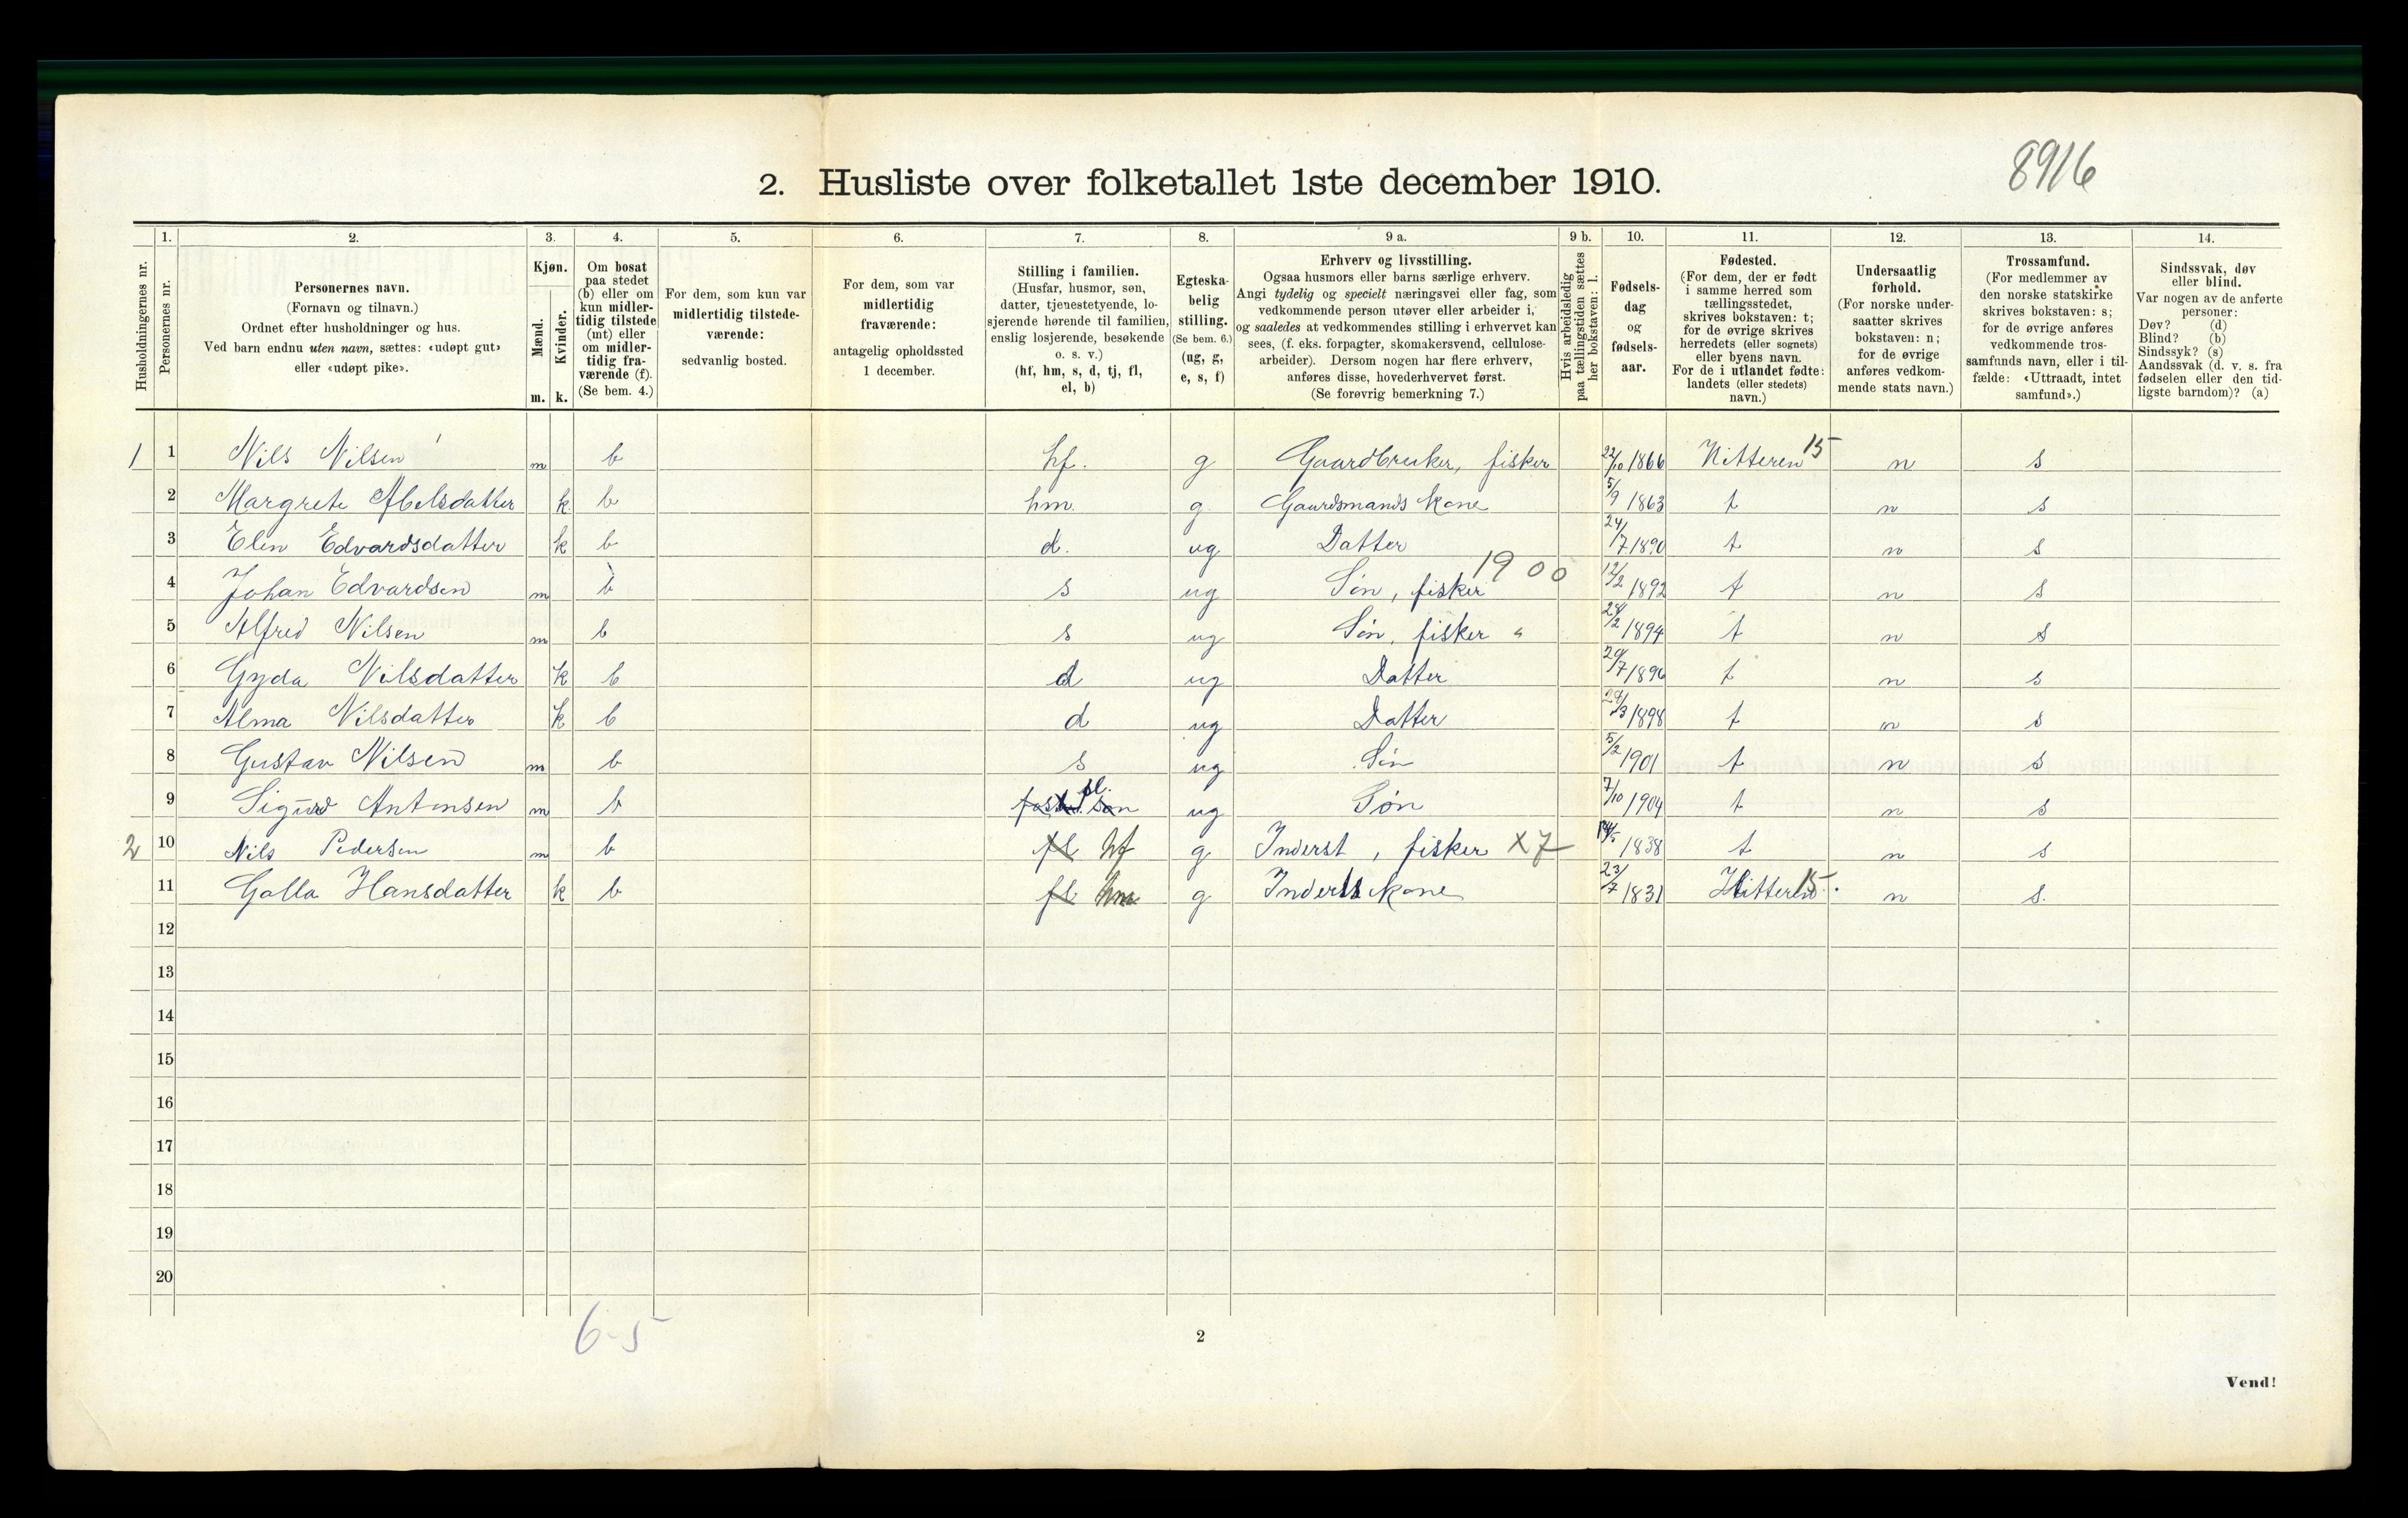 8916
2. Husliste over folketallet 1ste december 1910.
Husholdningernes nr.
1. Personernes nr.
2. Personernes navn.
(Fornavn og tilnavn.)
Ordnet efter husholdninger og hus.
Ved barn endnu uten navn, sættes: «udøpt gut»
eller «udøpt pike».
3. Kjøn.
Mænd. Kvinder.
m. k.
4. Om bosat
paa stedet
(b) eller om
kun midler-
tidig tilstede
(mt) eller
om midler-
tidig fra-
værende (f).
(Se bem. 4.)
5. For dem, som kun var
midlertidig tilstede-
værende:
sedvanlig bosted.
6. For dem, som var
midlertidig
fraværende:
antagelig opholdssted
1 december.
7. Stilling i familien.
(Husfar, husmor, søn,
datter, tjenestetyende, lo-
sjerende hørende til familien,
enslig losjerende, besøkende
o. s. v.)
(hf, hm, s, d, tj, fl,
el, b)
8. Egteska-
belig
stilling.
(Se bem. 6.)
(ug, g,
e, s, f)
9 a. Erhverv og livsstilling.
Ogsaa husmors eller barns særlige erhverv.
Angi tydelig og specielt næringsvei eller fag, som
vedkommende person utøver eller arbeider i,
og saaledes at vedkommendes stilling i erhvervet kan
sees, (f. eks. forpagter, skomakersvend, cellulose-
arbeider). Dersom nogen har flere erhverv,
anføres disse, hovederhvervet først.
(Se forøvrig bemerkning 7.)
9 b. Hvis arbeidsledig
paa tællingstiden sættes
her bokstaven: l.
10. Fødsels-
dag
og
fødsels-
aar.
11. Fødested.
(For dem, der er født
i samme herred som
tællingsstedet,
skrives bokstaven: t;
for de øvrige skrives
herredets (eller sognets)
eller byens navn.
For de i utlandet fødte:
landets (eller stedets)
navn.)
12. Undersaatlig
forhold.
(For norske under-
saatter skrives
bokstaven: n;
for de øvrige
anføres vedkom-
mende stats navn.)
13. Trossamfund.
(For medlemmer av
den norske statskirke
skrives bokstaven: s;
for de øvrige anføres
vedkommende tros-
samfunds navn, eller i til-
fælde: «Uttraadt, intet
samfund».)
14. Sindssvak, døv
eller blind.
Var nogen av de anførte
personer:
Døv? (d)
Blind? (b)
Sindssyk? (s)
Aandssvak (d. v. s. fra
fødselen eller den tid-
ligste barndom)? (a)
1 1 Nils Nilsen m b hf. g Gaardbruker, fisker 22/10 1866 Hitteren 15 n s
2 Margrete Abelsdatter k b hm. g Gaardsmands kone 5/9 1863 t n s
3 Elen Edvardsdatter k b d. ug Datter 24/7 1890 t n s
4 Johan Edvardsen m b s ug Søn, fisker 1900 12/2 1892 t n s
5 Alfred Nilsen m b s ug Søn, fisker " 24/2 1894 t n s
6 Gyda Nilsdatter k b d ug Datter 29/7 1896 t n s
7 Alma Nilsdatter k b d ug Datter 24/3 1898 t n s
8 Gustav Nilsen m b s ug Søn 5/2 1901 t n s
9 Sigurd Antonsen m b fl. ug Søn 7/10 1904 t n s
2 10 Nils Pedersen m b fl hf g Inderst, fisker X7 1838 t n s
11 Golla Hansdatter k b fl hm g Inderst kone 23/7 1831 Hitteren 15 n s.
12
13
14
15
16
17
18
19
20
6-5
2
Vend!